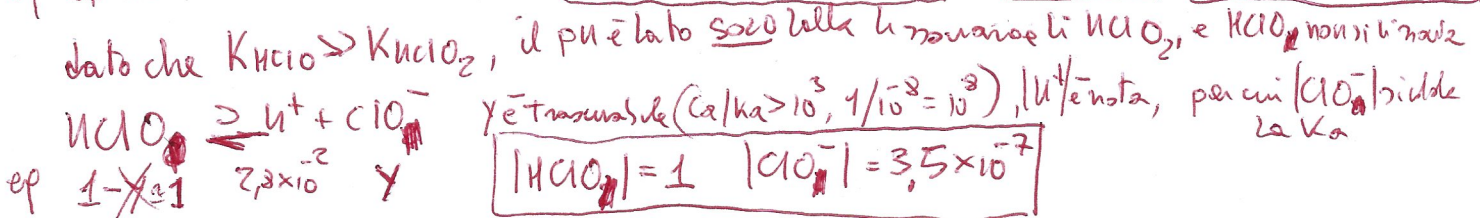 dato che KHClO >> KHClO₂, il pH è dato solo dalla dissociazione di HClO₂, e HClO non si dissocia
HClO ⇄ H⁺ + ClO⁻ y è trascurabile (Ca/Ka > 10³, 1/10⁻⁸ = 10⁸), |H⁺| è nota, per cui |ClO⁻| si ddalla Ka
eq 1-y≈1 2,8×10⁻² y |HClO| = 1 |ClO⁻| = 3,5×10⁻⁷